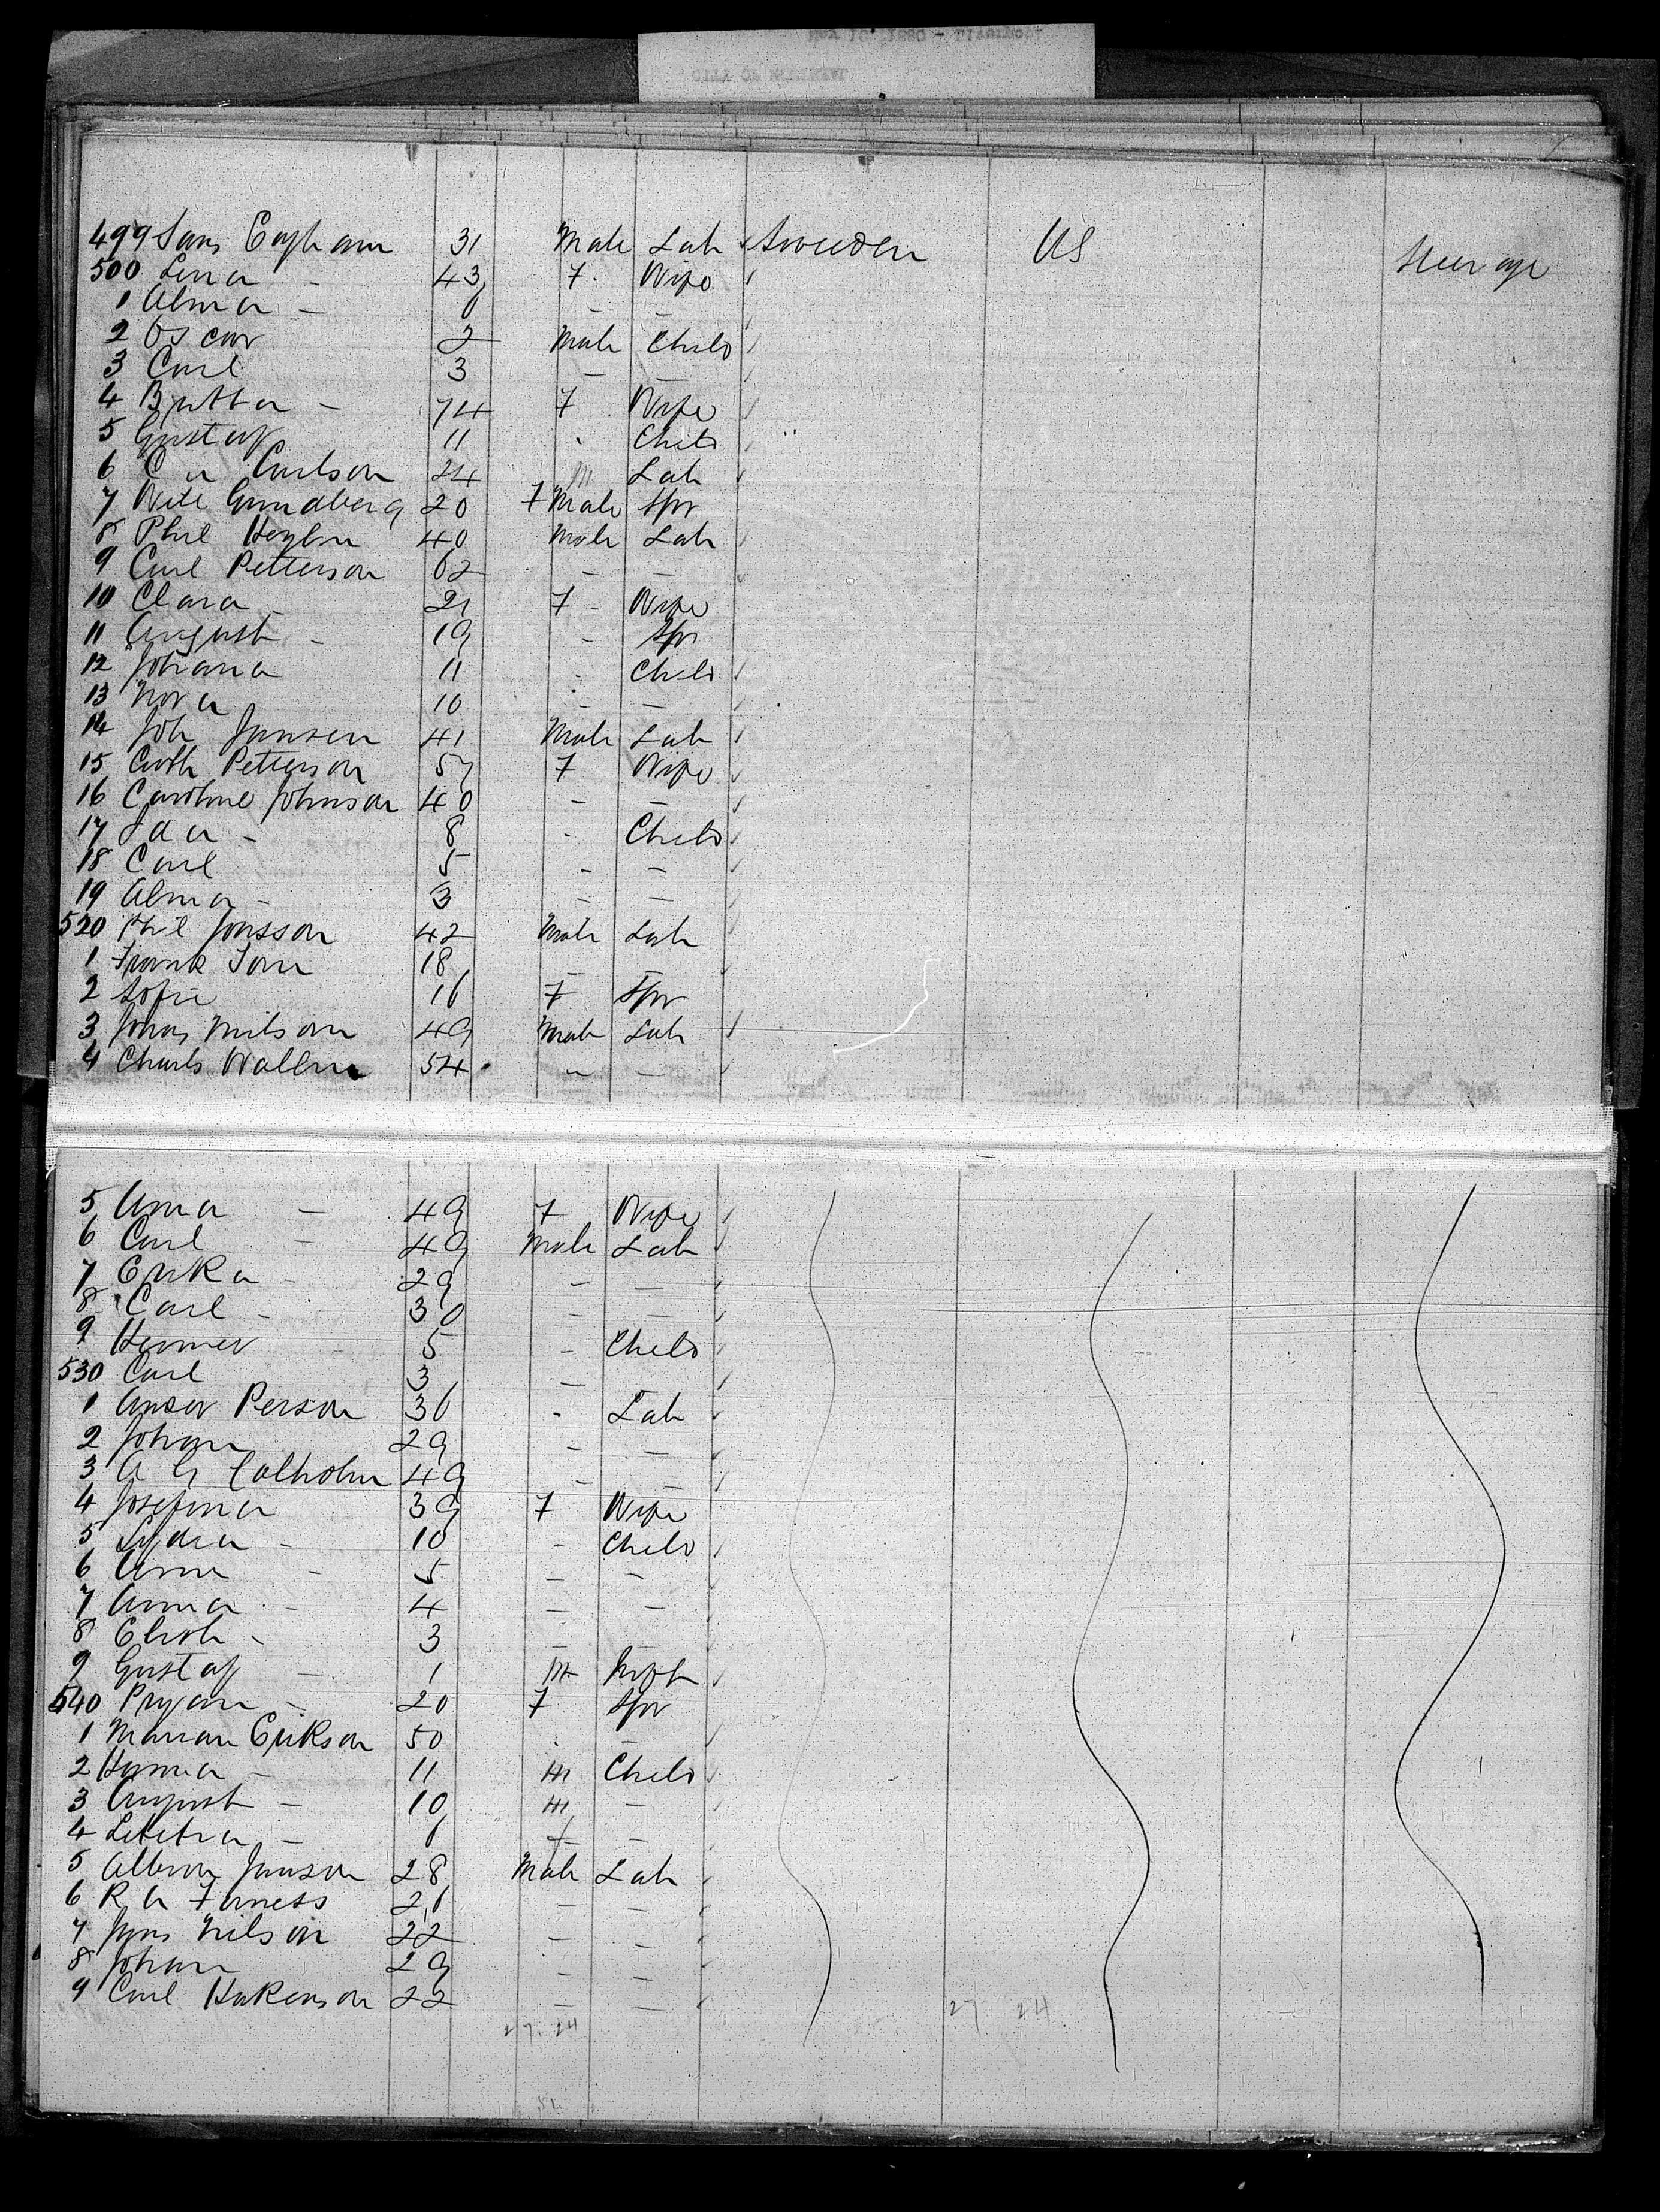 499 Lars Engham 31 Male Lab Sweden US Steerage
500 Lena - 43 F. Wife
1 Alma - 6 - -
2 Oscar 2 Male Child
3 Carl 3 - -
4 Britta - 74 F Wife
5 Gustaf 11 - Child
6 C a Carlson 24 m Lab
7 Grundberg 20 F Male Spr
8 Phil 40 Male Lab
9 Carl Petterson 62 - -
10 Clara - 21 F - Wife
11 August - 19 - Spr
12 Johana 11 - Child
13 Nora 10 - -
14 Joh Jansen 41 Male Lab
15 Cath Petterson 57 F Wife
16 Caroline Johnson 40 - -
17 Ida - 8 - Child
18 Carl 5 - -
19 Alma - 3 - -
520 Phil Jonsson 42 Male Lab
1 Frank 18 - -
2 Sofie 16 F Spr
3 Jonas Nilson 49 Male Lab
4 Charls Wallin 54 - -
5 Anna - 49 F Wife
6 Carl - 49 Male Lab
7 Erika - 29 - -
8 Carl - 30 - -
9 5 - Child
530 Carl 3 - -
1 Person 36 - Lab
2 Johan 29 - -
3 A G 49 - -
4 Josefina 39 F Wife
5 Lydia - 10 - Child
6 Anna - 5 - -
7 Anna - 4 - -
8 - 3 - -
9 Gustaf - 1 m Inft
540 - 20 F Spr
1 Erikson 50 - -
2 Hanna - 11 m Child
3 August - 10 m -
4 - 6 f -
5 Jansson 28 Male Lab
6 R A 26 - -
7 Jons Nilson 22 - -
8 Johan 29 - -
9 Carl Hakenson 22 - -
27. 24 27 24
51